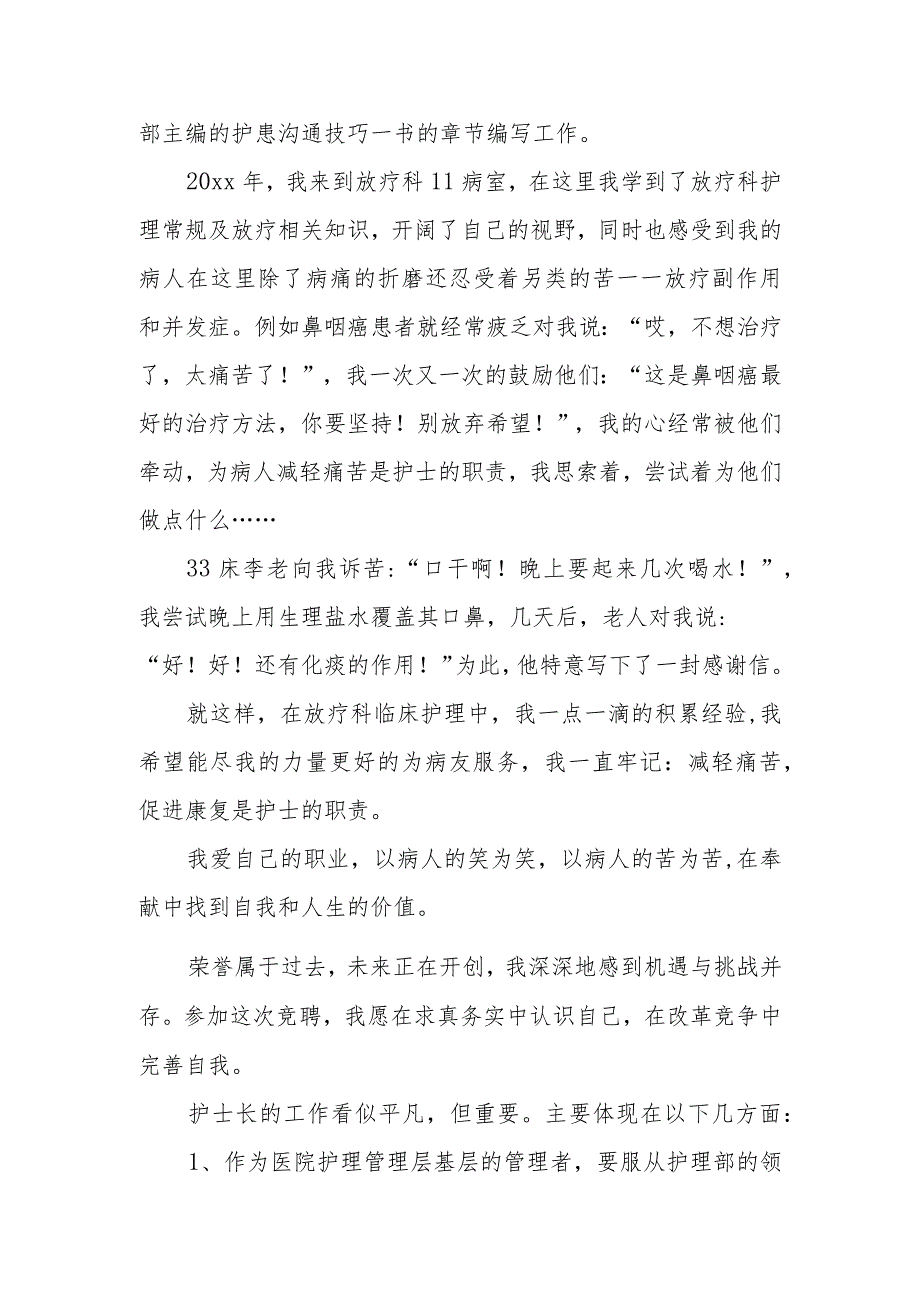 部主编的护患沟通技巧一书的章节编写工作。
20xx 年，我来到放疗科 11 病室，在这里我学到了放疗科护
理常规及放疗相关知识，开阔了自己的视野，同时也感受到我的
病人在这里除了病痛的折磨还忍受着另类的苦一一放疗副作用
和并发症。例如鼻咽癌患者就经常疲乏对我说：“哎，不想治疗
了，太痛苦了！”，我一次又一次的鼓励他们：“这是鼻咽癌最
好的治疗方法，你要坚持！别放弃希望！”，我的心经常被他们
牵动，为病人减轻痛苦是护士的职责，我思索着，尝试着为他们
做点什么……
33 床李老向我诉苦：“口干啊！晚上要起来几次喝水！”，
我尝试晚上用生理盐水覆盖其口鼻，几天后，老人对我说：
“好！好！还有化痰的作用！”为此,他特意写下了一封感谢信。
就这样，在放疗科临床护理中，我一点一滴的积累经验,我
希望能尽我的力量更好的为病友服务，我一直牢记：减轻痛苦，
促进康复是护士的职责。
我爱自己的职业，以病人的笑为笑，以病人的苦为苦,在奉
献中找到自我和人生的价值。
荣誉属于过去，未来正在开创，我深深地感到机遇与挑战并
存。参加这次竞聘，我愿在求真务实中认识自己，在改革竞争中
完善自我。
护士长的工作看似平凡，但重要。主要体现在以下几方面：
1、作为医院护理管理层基层的管理者，要服从护理部的领